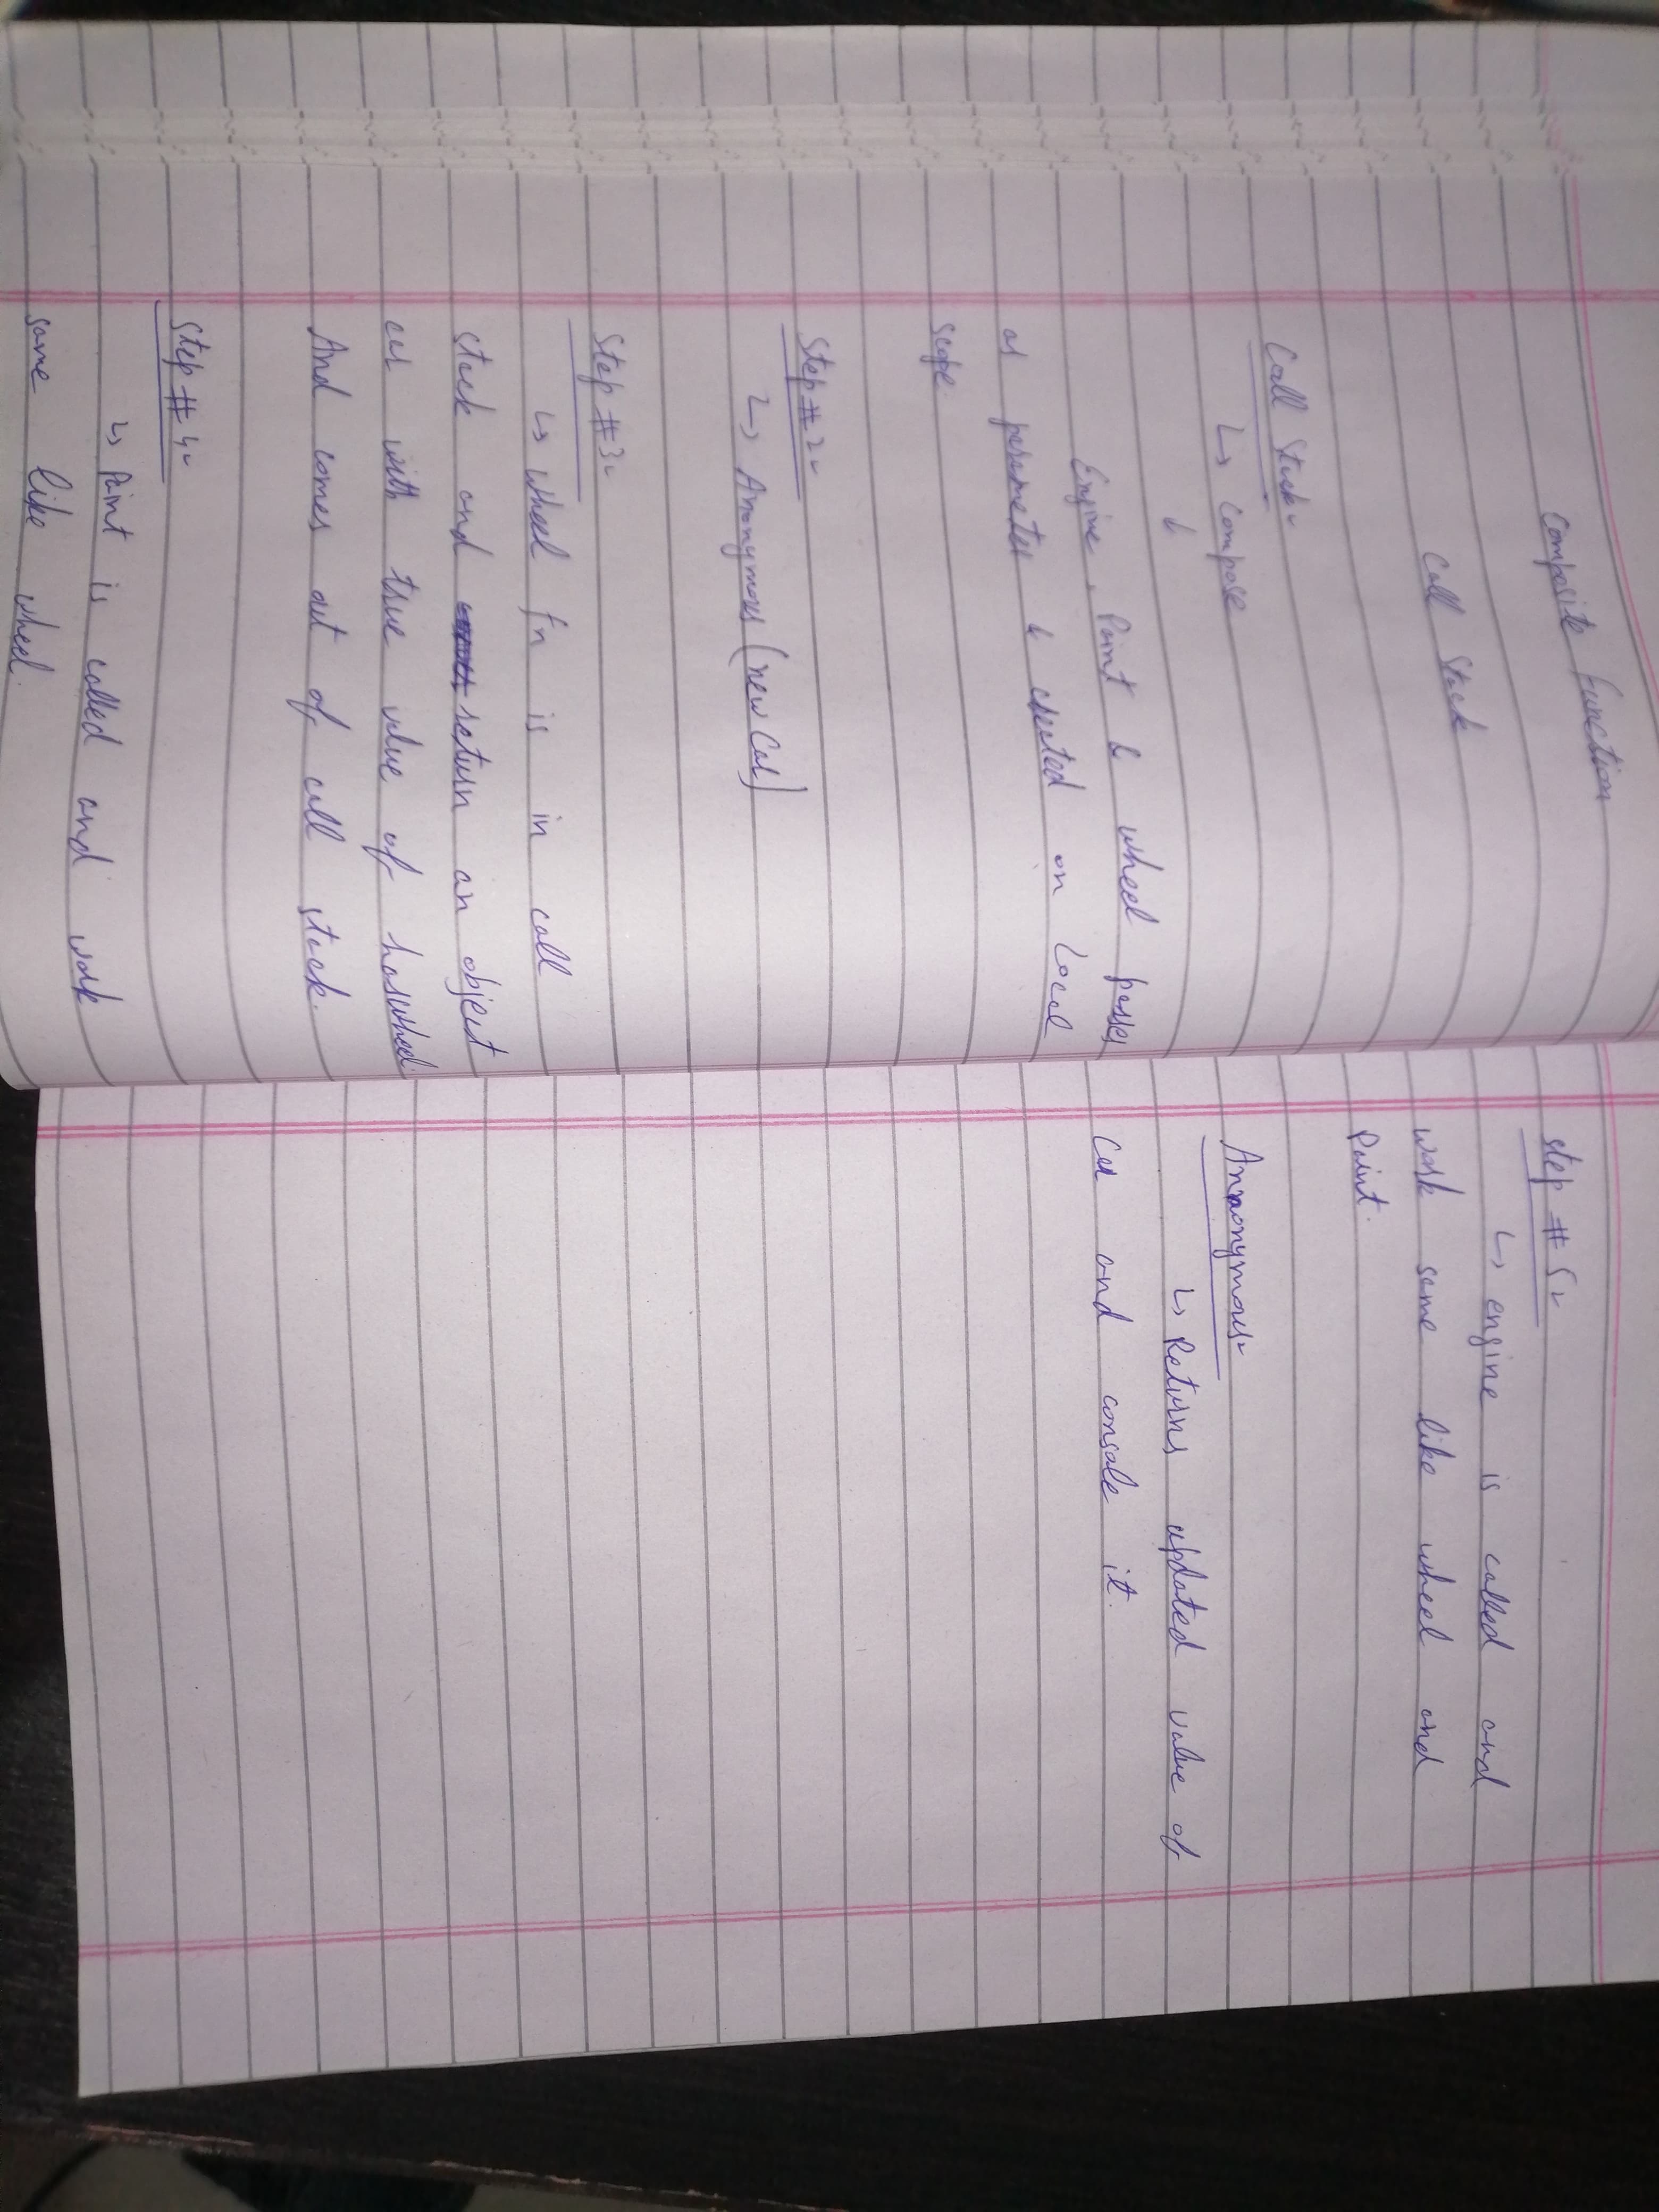 Composite Function
Call Stack
Call Stack:-
↳ Compose
↓
Engine, Paint & wheel passes
as parameter & created on Local
scope.
Step #2:-
↳ Anonymous (new Car)
Step #3:-
↳ Wheel fn is in call
stack and return an object
car with true value of hasWheel.
And comes out of call stack.
Step #4:-
↳ Paint is called and work
same like wheel.
Step #5:-
↳ engine is called and
work same like wheel and
Paint.
Annonymous:-
↳ Returns updated value of
Car and console it.